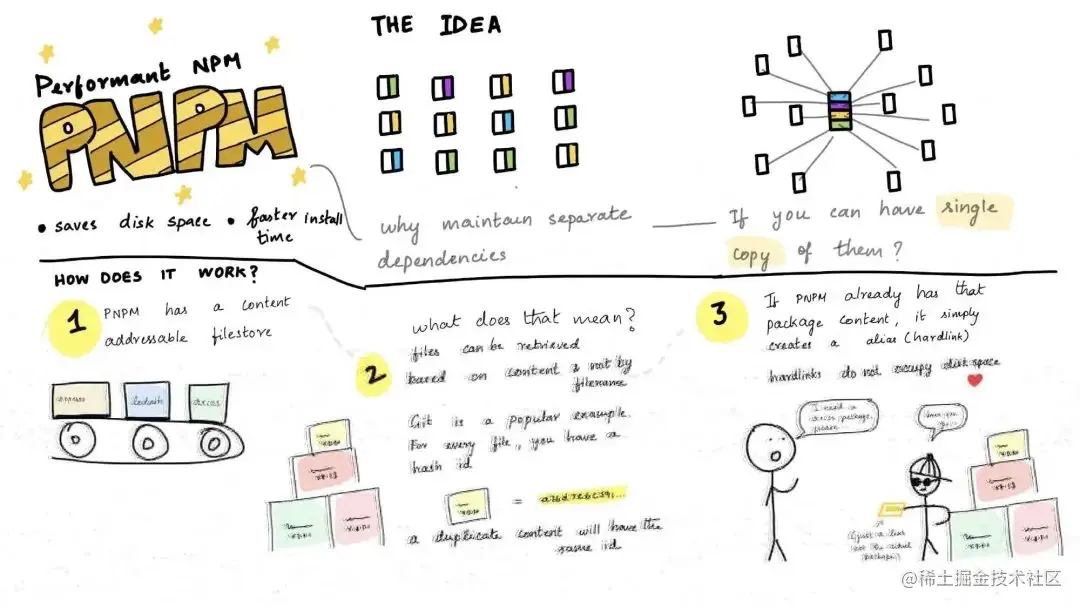 Performant NPM
PNPM
• saves disk space • faster install
time
THE IDEA
why maintain separate
dependencies
If you can have single
copy of them?
HOW DOES IT WORK?
1
PNPM has a content
addressable filestore
lodash
2
what does that mean?
files can be retrieved
based on content & not by
filename
Git is a popular example.
For every file, you have a
hash id
=
a duplicate content will have the
same id
3
If PNPM already has that
package content, it simply
creates a alias (hardlink)
hardlinks do not occupy disk space
I need a
package,
please
Here you
go...
@稀土掘金技术社区